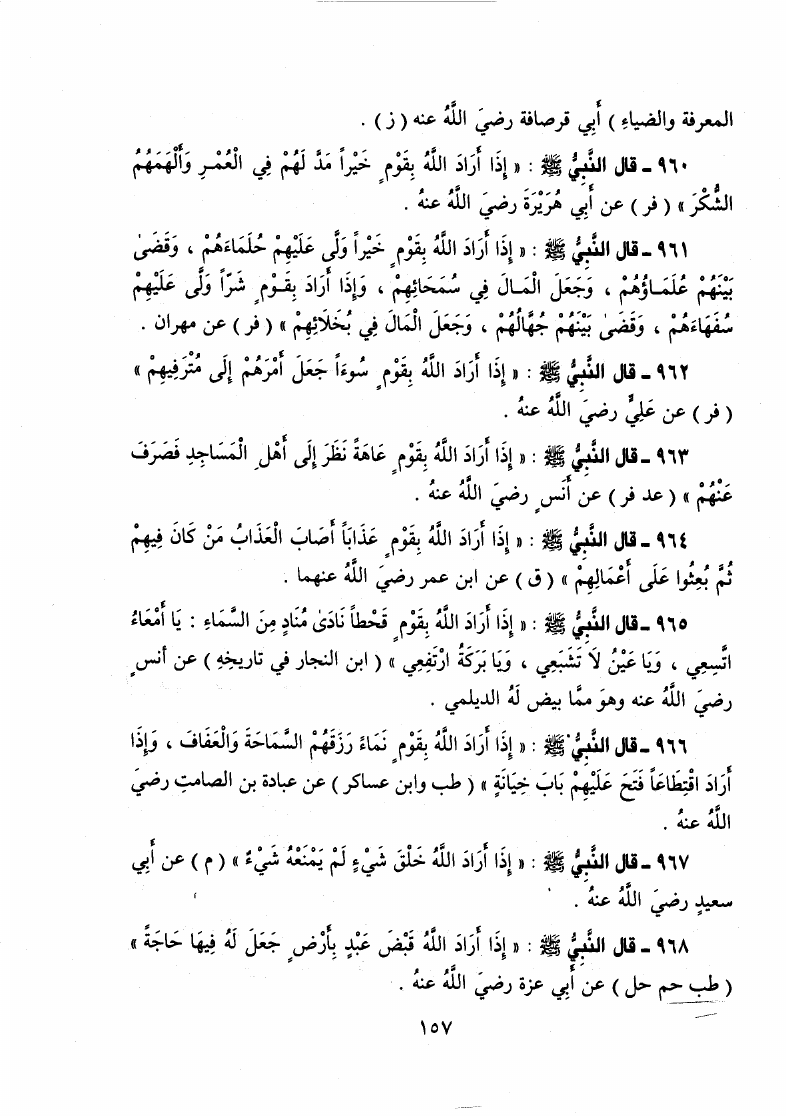 المعرفة والضياء ) أَبي قرصافة رضيَ اللَّهُ عنه ( ز ) .
٩٦٠ ـ قال النَّبيُّ ﷺ : « إِذَا أَرَادَ اللَّهُ بِقَوْمٍ خَيْراً مَدَّ لَهُمْ فِي الْعُمْرِ وَأَلْهَمَهُمُ
الشُّكْرَ » ( فر ) عن أَبي هُرَيْرَةَ رضيَ اللَّهُ عنهُ .
٩٦١ ـ قال النَّبيُّ ﷺ : « إِذَا أَرَادَ اللَّهُ بِقَوْمٍ خَيْراً وَلَّى عَلَيْهِمْ حُلَمَاءَهُمْ ، وَقَضَىٰ
بَيْنَهُمْ عُلَمَاؤُهُمْ ، وَجَعَلَ الْمَالَ فِي سُمَحَائِهِمْ ، وَإِذَا أَرَادَ بِقَوْمٍ شَرّاً وَلَّى عَلَيْهِمْ
سُفَهَاءَهُمْ ، وَقَضَىٰ بَيْنَهُمْ جُهَّالُهُمْ ، وَجَعَلَ الْمَالَ فِي بُخَلَائِهِمْ » ( فر ) عن مهران .
٩٦٢ ـ قال النَّبيُّ ﷺ : « إِذَا أَرَادَ اللَّهُ بِقَوْمٍ سُوءَاً جَعَلَ أَمْرَهُمْ إِلَى مُتْرَفِيهِمْ »
( فر ) عن عَلِيٍّ رضيَ اللَّهُ عنهُ .
٩٦٣ ـ قال النَّبيُّ ﷺ : « إِذَا أَرَادَ اللَّهُ بِقَوْمٍ عَاهَةً نَظَرَ إِلَى أَهْلِ الْمَسَاجِدِ فَصَرَفَ
عَنْهُمْ » ( عد فر ) عن أَنسٍ رضيَ اللَّهُ عنهُ .
٩٦٤ ـ قال النَّبيُّ ﷺ : « إِذَا أَرَادَ اللَّهُ بِقَوْمٍ عَذَابَاً أَصَابَ الْعَذَابُ مَنْ كَانَ فِيهِمْ
ثُمَّ بُعِثُوا عَلَى أَعْمَالِهِمْ » ( ق ) عن ابن عمر رضيَ اللَّهُ عنهما .
٩٦٥ ـ قال النَّبيُّ ﷺ : « إِذَا أَرَادَ اللَّهُ بِقَوْمٍ قَحْطاً نَادَىٰ مُنَادٍ مِنَ السَّمَاءِ : يَا أَمْعَاءُ
اتَّسِعِي ، وَيَا عَيْنُ لاَ تَشْبَعِي ، وَيَا بَرَكَةُ ارْتَفِعِي » ( ابن النجار في تاريخِهِ ) عن أنسٍ
رضيَ اللَّهُ عنه وهوَ ممَّا بيض لَهُ الديلمي .
٩٦٦ ـ قال النَّبيُّ ﷺ : « إِذَا أَرَادَ اللَّهُ بِقَوْمٍ نَمَاءً رَزَقَهُمْ السَّمَاحَةَ وَالْعَفَافَ ، وَإِذَا
أَرَادَ اقْتِطَاعَاً فَتَحَ عَلَيْهِمْ بَابَ خِيَانَةٍ » ( طب وابن عساكر ) عن عبادة بن الصامتِ رضيَ
اللَّهُ عنهُ .
٩٦٧ ـ قال النَّبيُّ ﷺ : « إِذَا أَرَادَ اللَّهُ خَلْقَ شَيْءٍ لَمْ يَمْنَعْهُ شَيْءٌ » ( م ) عن أَبي
سعيدٍ رضيَ اللَّهُ عنهُ .
٩٦٨ ـ قال النَّبيُّ ﷺ : « إِذَا أَرَادَ اللَّهُ قَبْضَ عَبْدٍ بِأَرْضٍ جَعَلَ لَهُ فِيهَا حَاجَةً »
( طب حم حل ) عن أَبي عزة رضيَ اللَّهُ عنهُ .
١٥٧